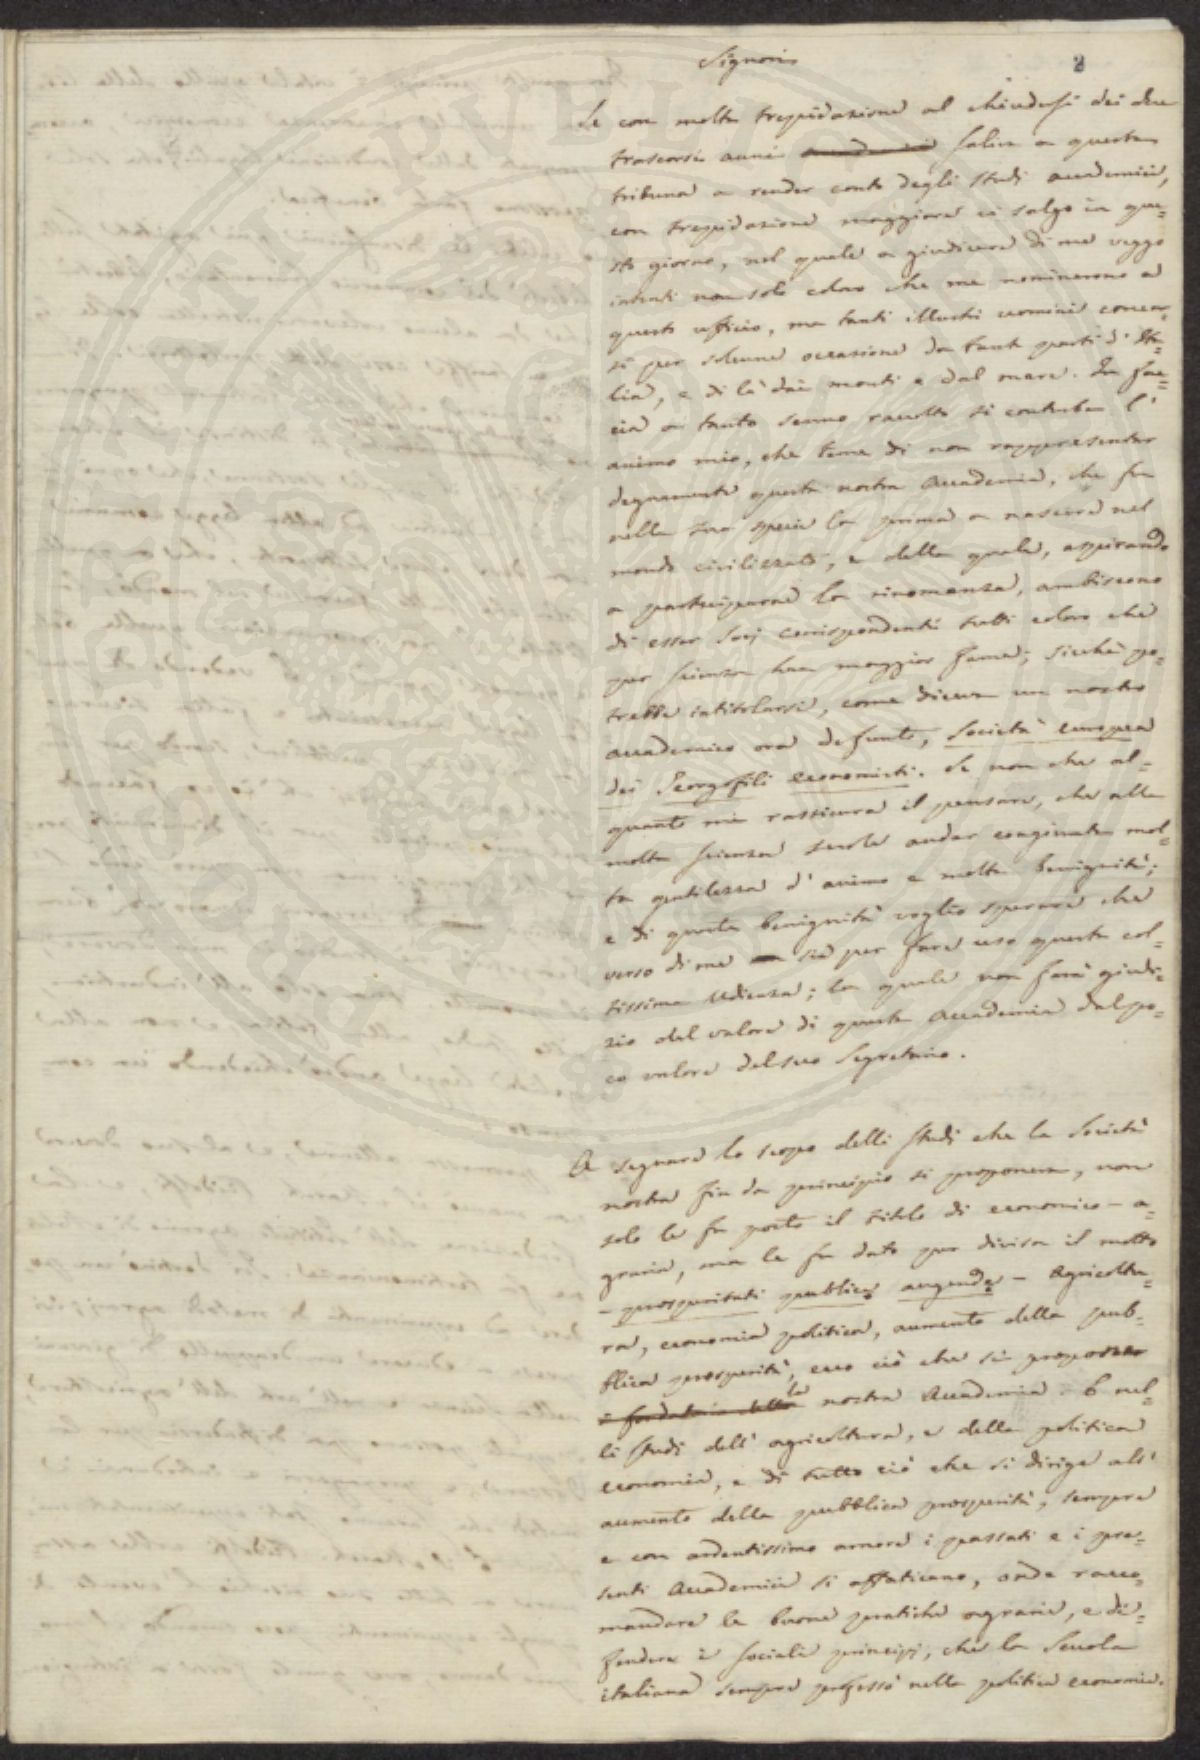 Signori
2
Se con molta trepidazione al chiudersi dei due
trascorsi anni salii a questa
tribuna a render conto degli studi accademici,
con trepidazione maggiore vi salgo in que=
sto giorno, nel quale a giudicare di me veggo
intenti non solo coloro che me nominarono a
questo ufficio, ma tanti illustri uomini concor=
si per solenne occasione da tante parti d'Ita=
lia, e di là dai monti e dal mare. In fac=
cia a tanto senno raccolto si conturba l'
animo mio, che teme di non rappresentar
degnamente questa nostra Accademia, che fu
nella sua specie la prima a nascere nel
mondo civilizzato, e della quale, aspirando
a parteciparne la rinomanza, ambiscono
di esser Socj corrispondenti tutti coloro che
per scienza han maggior fama; sicchè po=
trebbe intitolarsi, come diceva un nostro
accademico ora defunto, Società europea
dei Georgofili economisti. Se non che al=
quanto mi rassicura il pensare, che alla
molta scienza suole andar congiunta mol=
ta gentilezza d'animo e molta benignità;
e di questa benignità voglio sperare che
verso di me sia per fare uso questa col=
tissima Udienza; la quale non farà giudi=
zio del valore di questa Accademia dal po=
co valore del suo Segretario.
A segnare lo scopo delli studi che la Società
nostra fin da principio si proponeva, non
solo le fu posto il titolo di economico-a=
graria, ma le fu dato per divisa il motto
- prosperitati publicæ augendæ - Agricoltu=
ra, economia politica, aumento della pub=
blica prosperità, ecco ciò che si propose
la nostra Accademia. E nel=
li studi dell'agricoltura, e della politica
economia, e di tutto ciò che si dirige all'
aumento della pubblica prosperità, sempre
e con ardentissimo amore i passati e i pre=
senti Accademici si affaticano, onde racco=
mandare le buone pratiche agrarie, e di=
fendere i sociali principj, che la Scuola
italiana sempre professò nella politica economia.